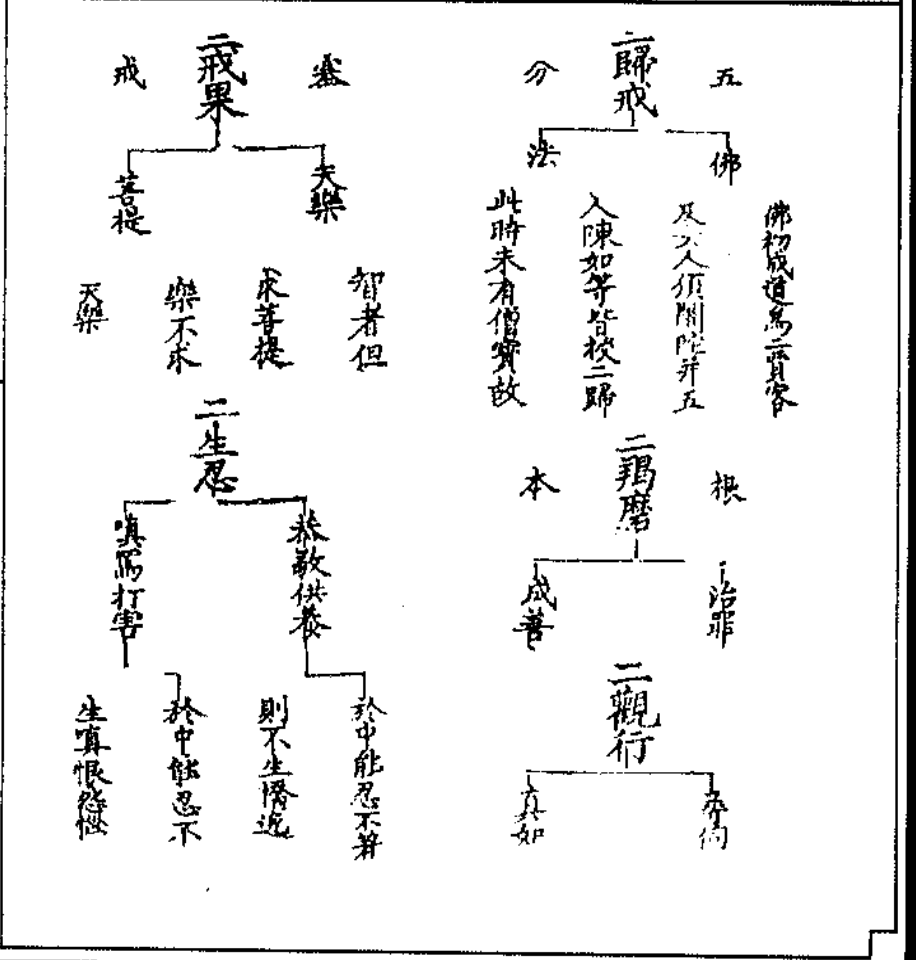 五
二歸戒
分
佛
法
佛初成道為二賈客
及六人須闍陀并五
人陳如等皆授二歸
此時未有僧寶故
根
二羯磨
本
治罪
成善
二觀行
真如
二戒果
戒
天樂
菩提
智者但
求菩提
樂不求
天樂
二生忍
恭敬供養
於中能忍不著
則不生憍逸
嗔罵打害
於中能忍不
生嗔恨怨惱